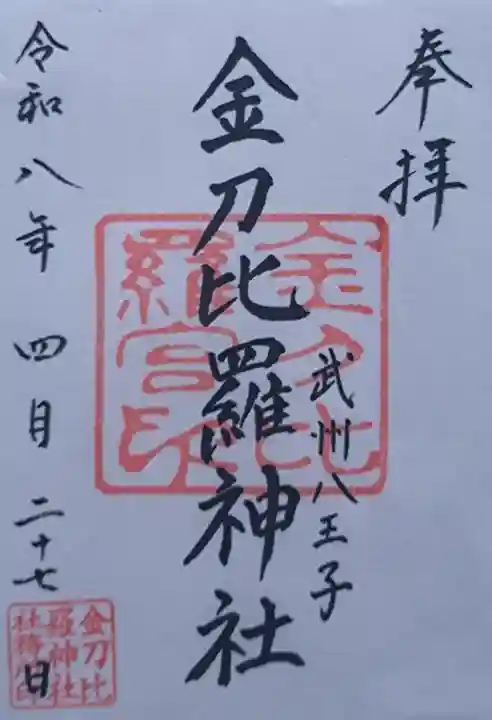 奉拝
武州八王子
金刀比羅神社
令和八年 四月 二十七日
金刀比
羅宮印
金刀比
羅神社